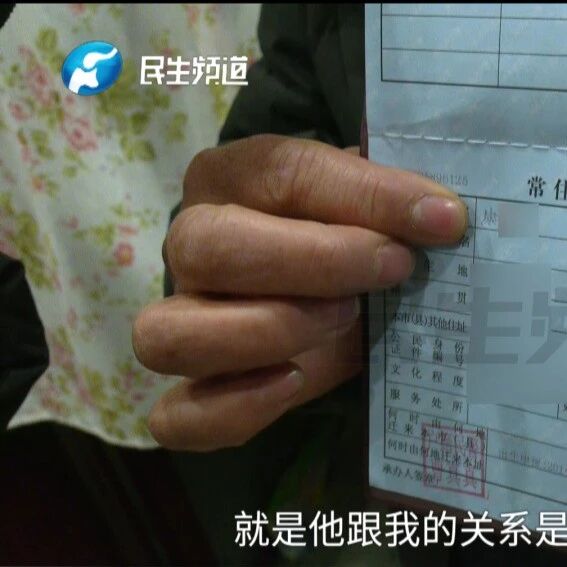 民生频道
常住
名
地
贯
本市(县)其他住址
公民身份
证件编号
文化程度
服务处所
何时由何地
迁来本市(县)
何时由何地迁来本址
承办人签章
民生频
就是他跟我的关系是